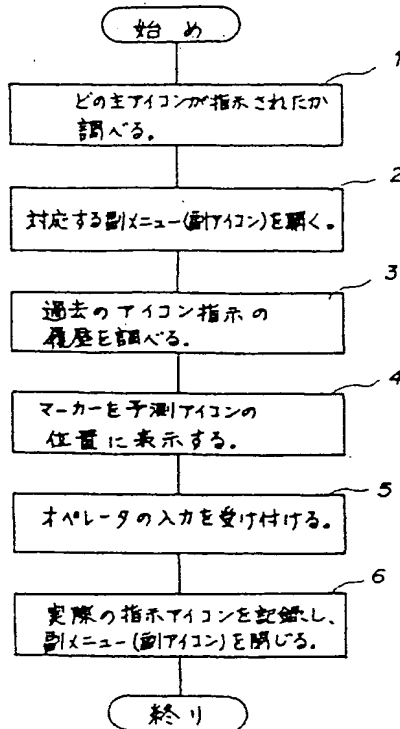 始め
1
どの主アイコンが指示されたか
調べる。
2
対応する副メニュー(副アイコン)を開く。
3
過去のアイコン指示の
履歴を調べる。
4
マーカーを予測アイコンの
位置に表示する。
5
オペレータの入力を受け付ける。
6
実際の指示アイコンを記録し、
副メニュー(副アイコン)を閉じる。
終り